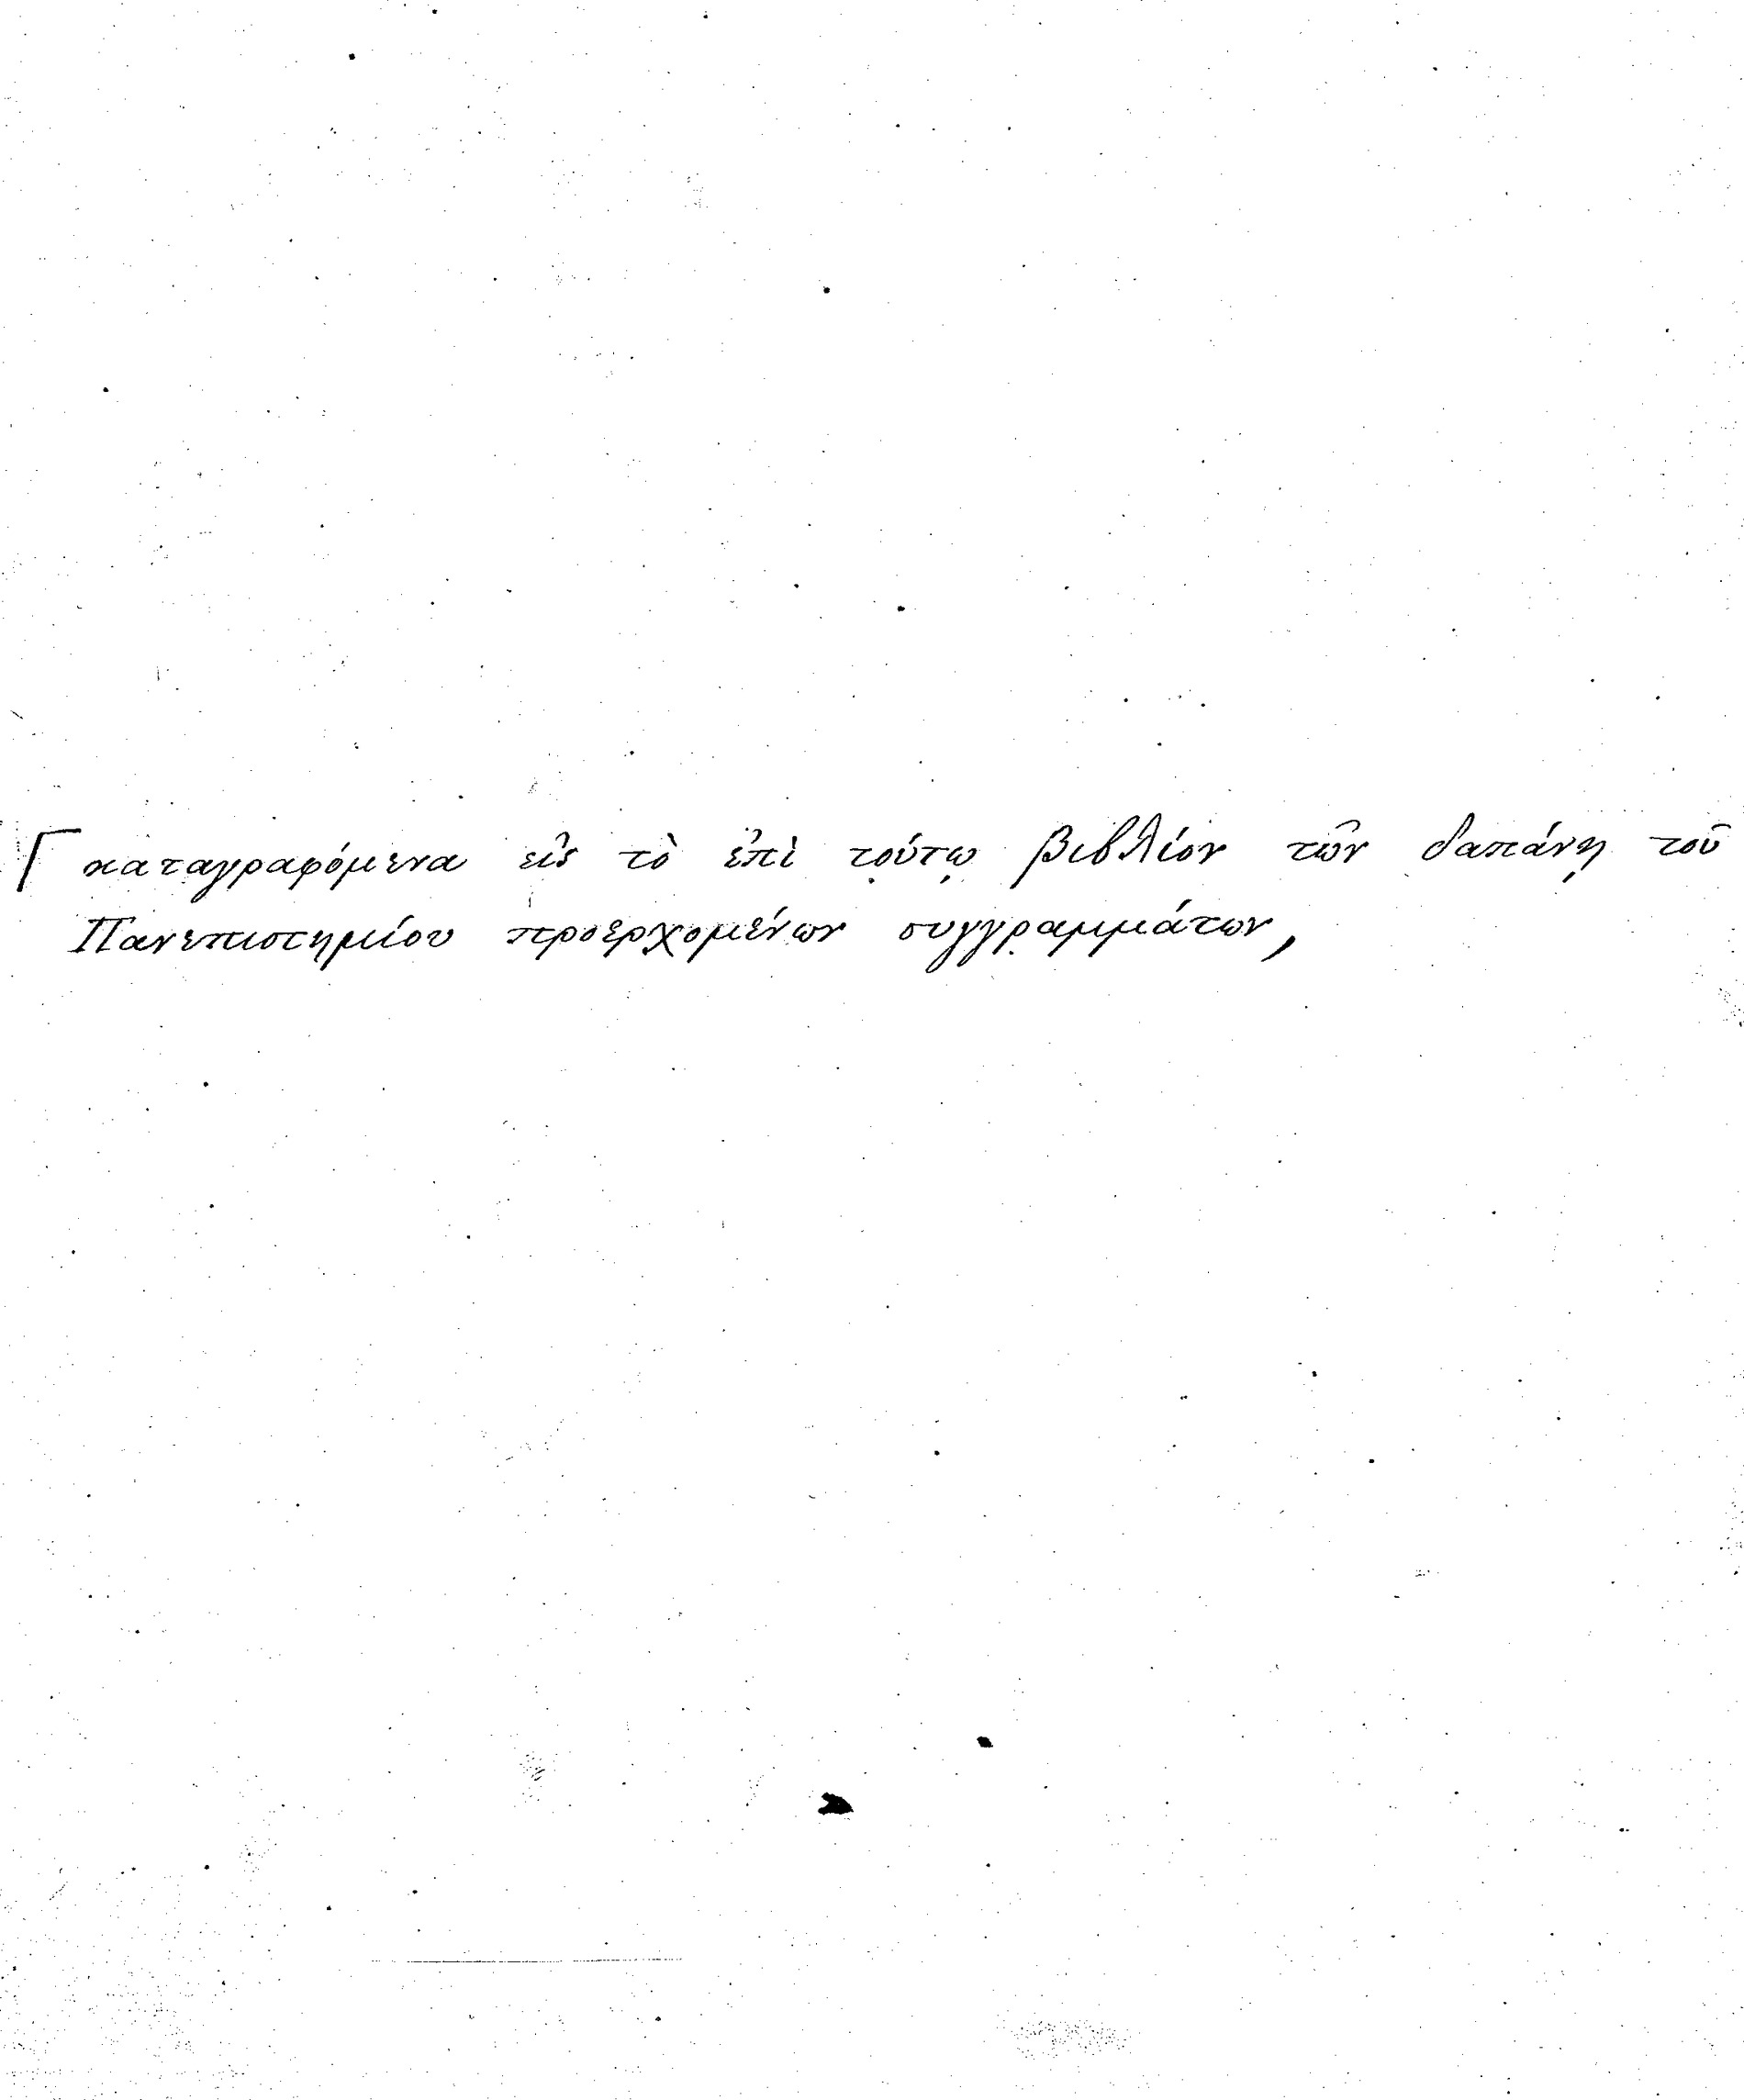 ⌈ καταγραφόμενα εἰς τὸ ἐπὶ τούτῳ βιβλίον τῶν δαπάνῃ τοῦ
Πανεπιστημίου προερχομένων συγγραμμάτων,